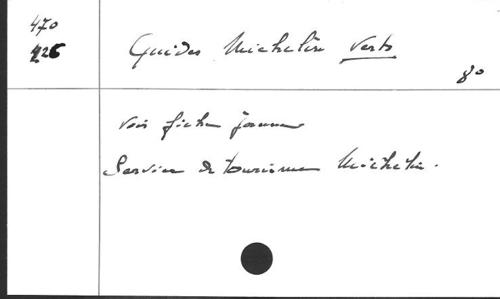 470
226
Guides Michelin Verts
8°
voir fiche jaune
Service de tourisme Michelin.